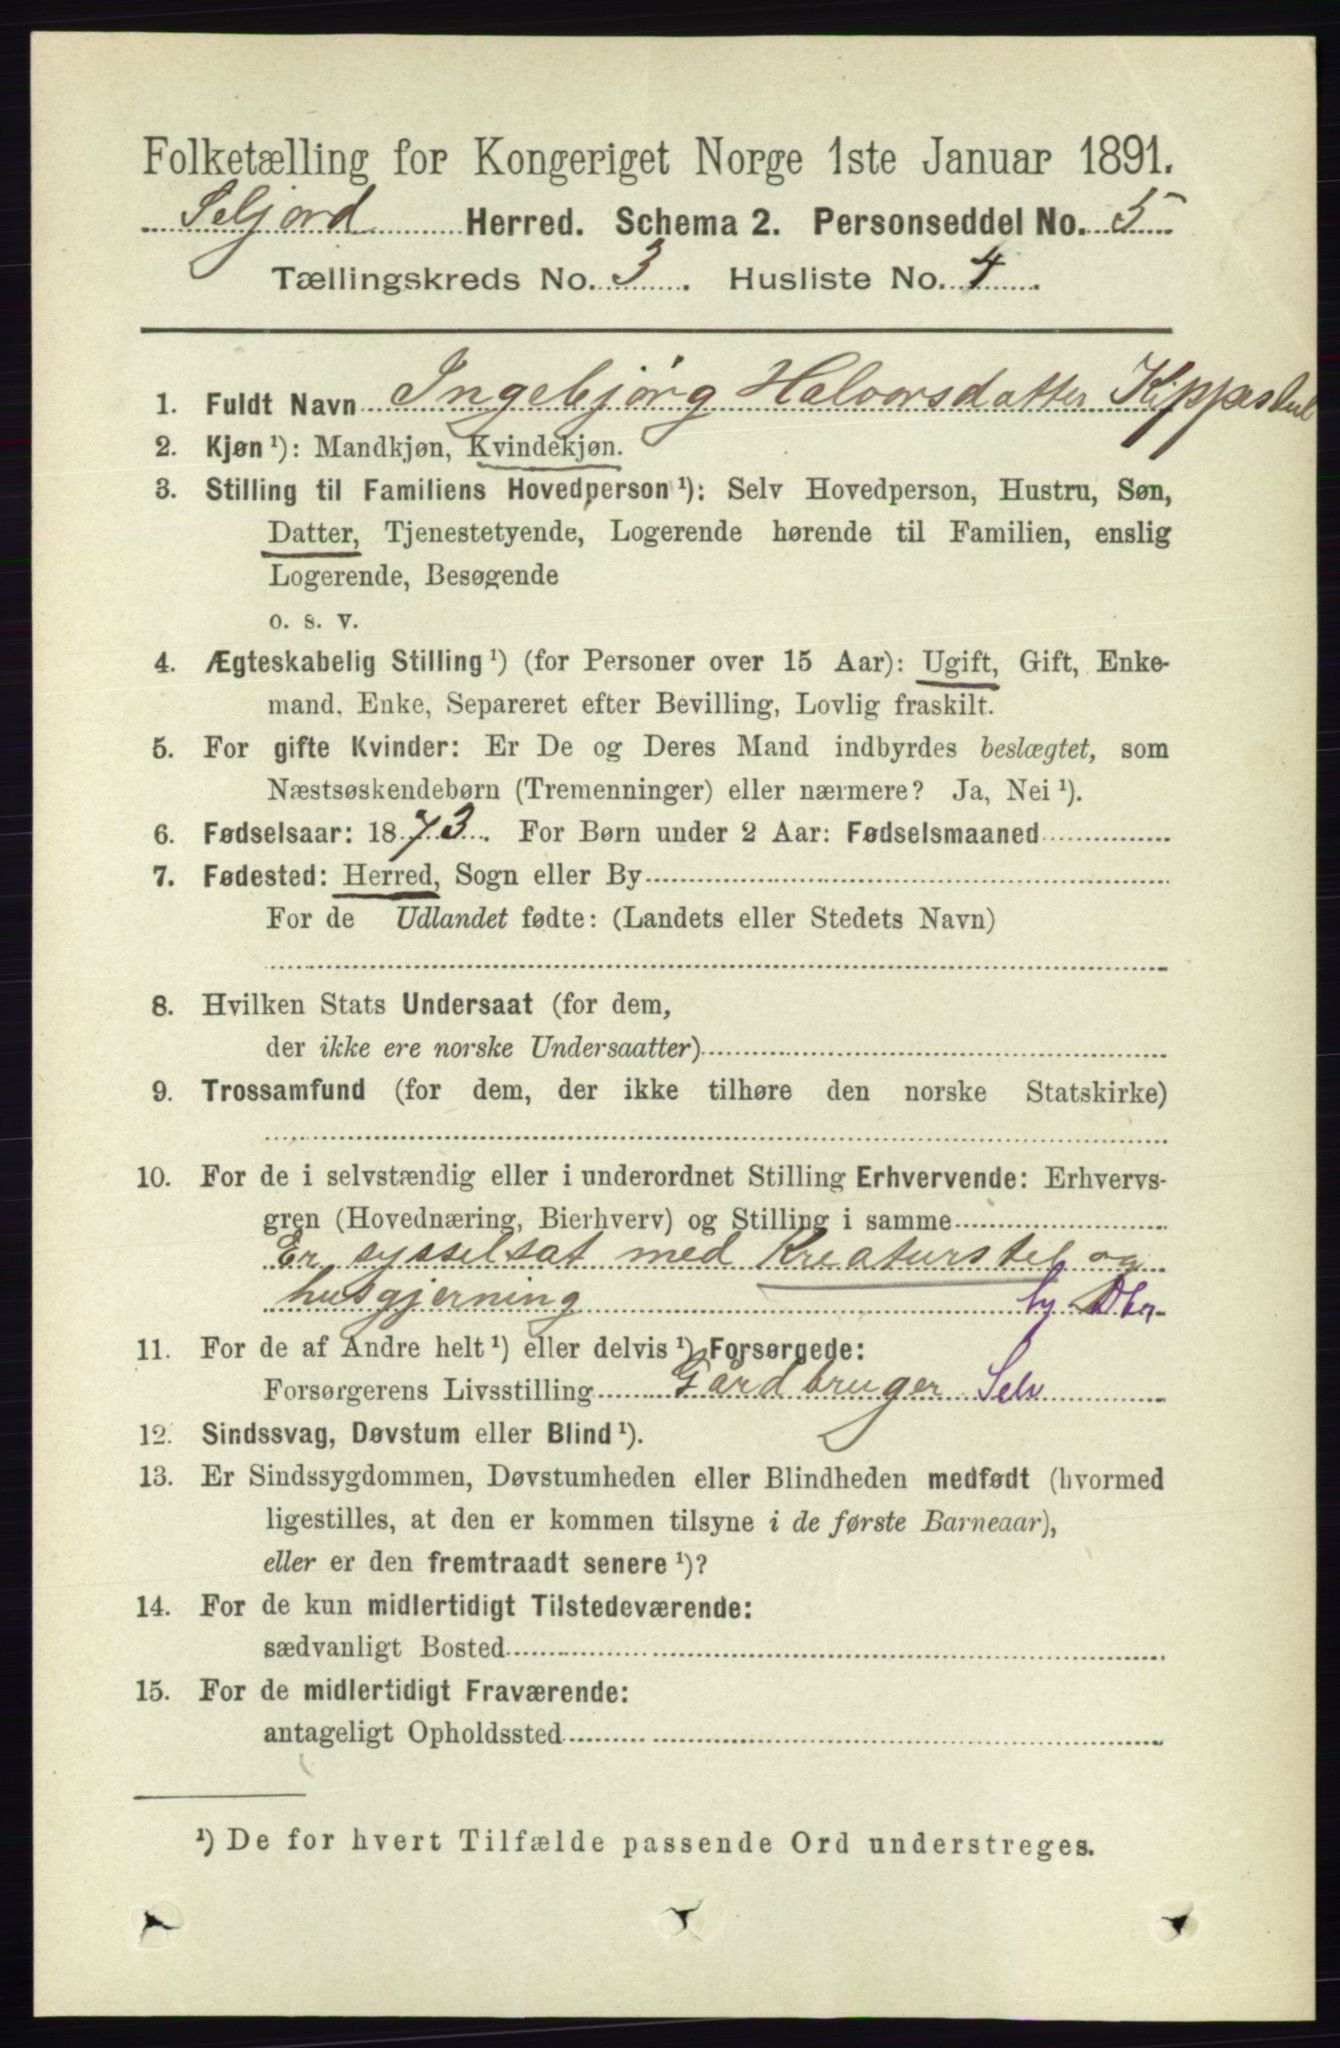 Folketælling for Kongeriget Norge 1ste Januar 1891.
Seljord Herred. Schema 2. Personseddel No. 5
Tællingskreds No. 3. Husliste No. 4.
1. Fuldt Navn Ingebjørg Halvorsdatter
2. Kjøn ¹): Mandkjøn, Kvindekjøn.
3. Stilling til Familiens Hovedperson ¹): Selv Hovedperson, Hustru, Søn,
Datter, Tjenestetyende, Logerende hørende til Familien, enslig
Logerende, Besøgende
o. s. v.
4. Ægteskabelig Stilling ¹) (for Personer over 15 Aar): Ugift, Gift, Enke-
mand, Enke, Separeret efter Bevilling, Lovlig fraskilt.
5. For gifte Kvinder: Er De og Deres Mand indbyrdes beslægtet, som
Næstsøskendebørn (Tremenninger) eller nærmere? Ja, Nei ¹).
6. Fødselsaar: 1873. For Børn under 2 Aar: Fødselsmaaned
7. Fødested: Herred, Sogn eller By
For de Udlandet fødte: (Landets eller Stedets Navn)
8. Hvilken Stats Undersaat (for dem,
der ikke ere norske Undersaatter)
9. Trossamfund (for dem, der ikke tilhøre den norske Statskirke)
10. For de i selvstændig eller i underordnet Stilling Erhvervende: Erhvervs-
gren (Hovednæring, Bierhverv) og Stilling i samme
Er sysselsat med Kreaturstel og
husgjerning
11. For de af Andre helt ¹) eller delvis ¹) Forsørgede:
Forsørgerens Livsstilling Gårdbruger Selv
12. Sindssvag, Døvstum eller Blind ¹).
13. Er Sindssygdommen, Døvstumheden eller Blindheden medfødt (hvormed
ligestilles, at den er kommen tilsyne i de første Barneaar),
eller er den fremtraadt senere ¹)?
14. For de kun midlertidigt Tilstedeværende:
sædvanligt Bosted
15. For de midlertidigt Fraværende:
antageligt Opholdssted
¹) De for hvert Tilfælde passende Ord understreges.